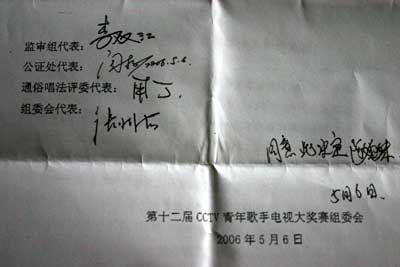 监审组代表：李双江
公证处代表： 2006.5.6
通俗唱法评委代表：
组委会代表：
同意此决定
5月6日.
第十二届 CCTV 青年歌手电视大奖赛组委会
2006 年 5 月 6 日